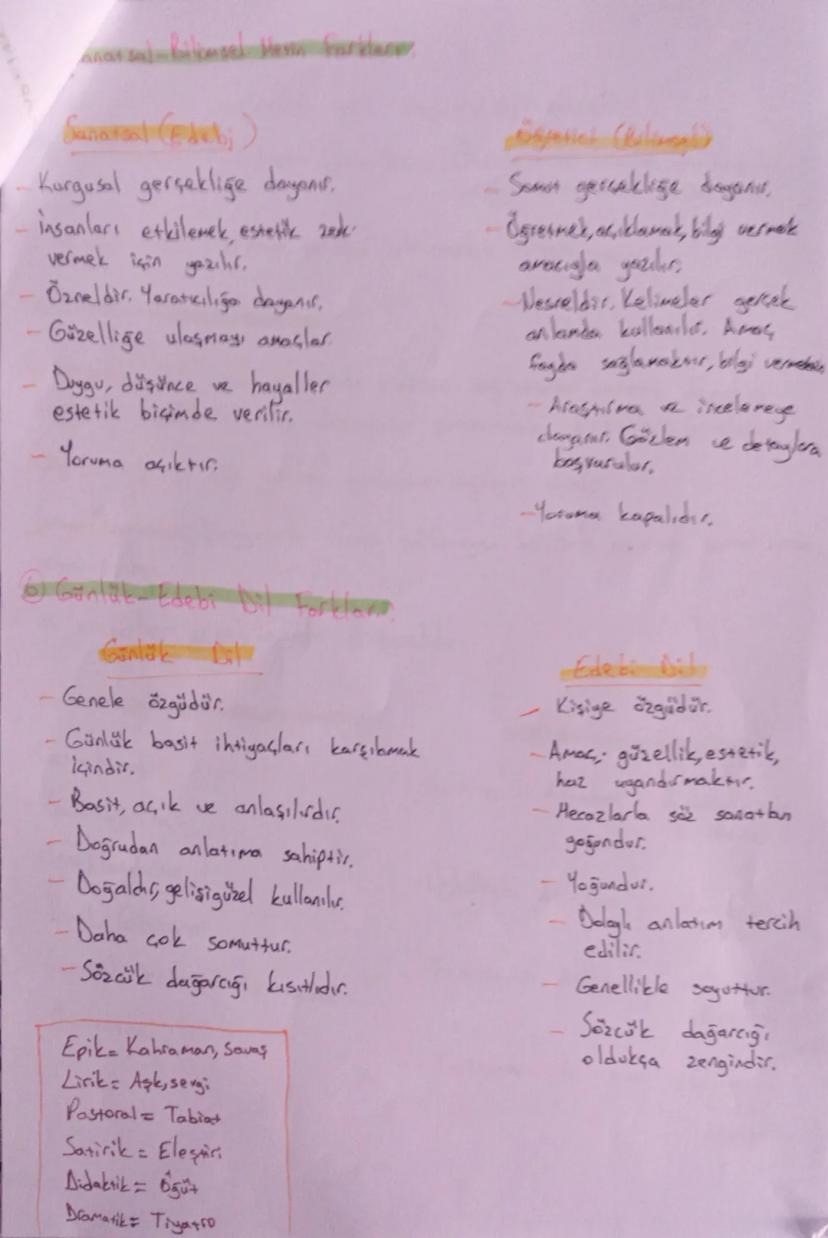 Sanatsal-Bilimsel Metin Farkları:
Sanatsal (Edebi)
- Kurgusal gerçekliğe dayanır.
- İnsanları etkilemek, estetik zevk
vermek için yazılır.
- Özneldir. Yaratıcılığa dayanır.
- Güzelliğe ulaşmayı amaçlar.
- Duygu, düşünce ve hayaller
estetik biçimde verilir.
- Yoruma açıktır.
Öğretici (Bilimsel)
- Somut gerçekliğe dayanır.
- Öğretmek, açıklamak, bilgi vermek
amacıyla yazılır.
- Nesneldir. Kelimeler gerçek
anlamda kullanılır. Amaç
fayda sağlamaktır, bilgi vermektir.
- Araştırma ve incelemeye
dayanır. Gözlem ve detaylara
başvurulur.
- Yoruma kapalıdır.
6) Günlük-Edebi Dil Farkları:
Günlük Dil
- Genele özgüdür.
- Günlük basit ihtiyaçları karşılamak
içindir.
- Basit, açık ve anlaşılırdır.
- Doğrudan anlatıma sahiptir.
- Doğaldır, gelişigüzel kullanılır.
- Daha çok somuttur.
- Sözcük dağarcığı kısıtlıdır.
Edebi Dil
- Kişiye özgüdür.
- Amaç; güzellik, estetik,
haz uyandırmaktır.
- Mecazlarla söz sanatları
yoğundur.
- Yoğundur.
- Dolaylı anlatım tercih
edilir.
- Genellikle soyuttur.
- Sözcük dağarcığı
oldukça zengindir.
Epik= Kahraman, Savaş
Lirik= Aşk, sevgi
Pastoral= Tabiat
Satirik= Eleştiri
Didaktik= Öğüt
Dramatik= Tiyatro